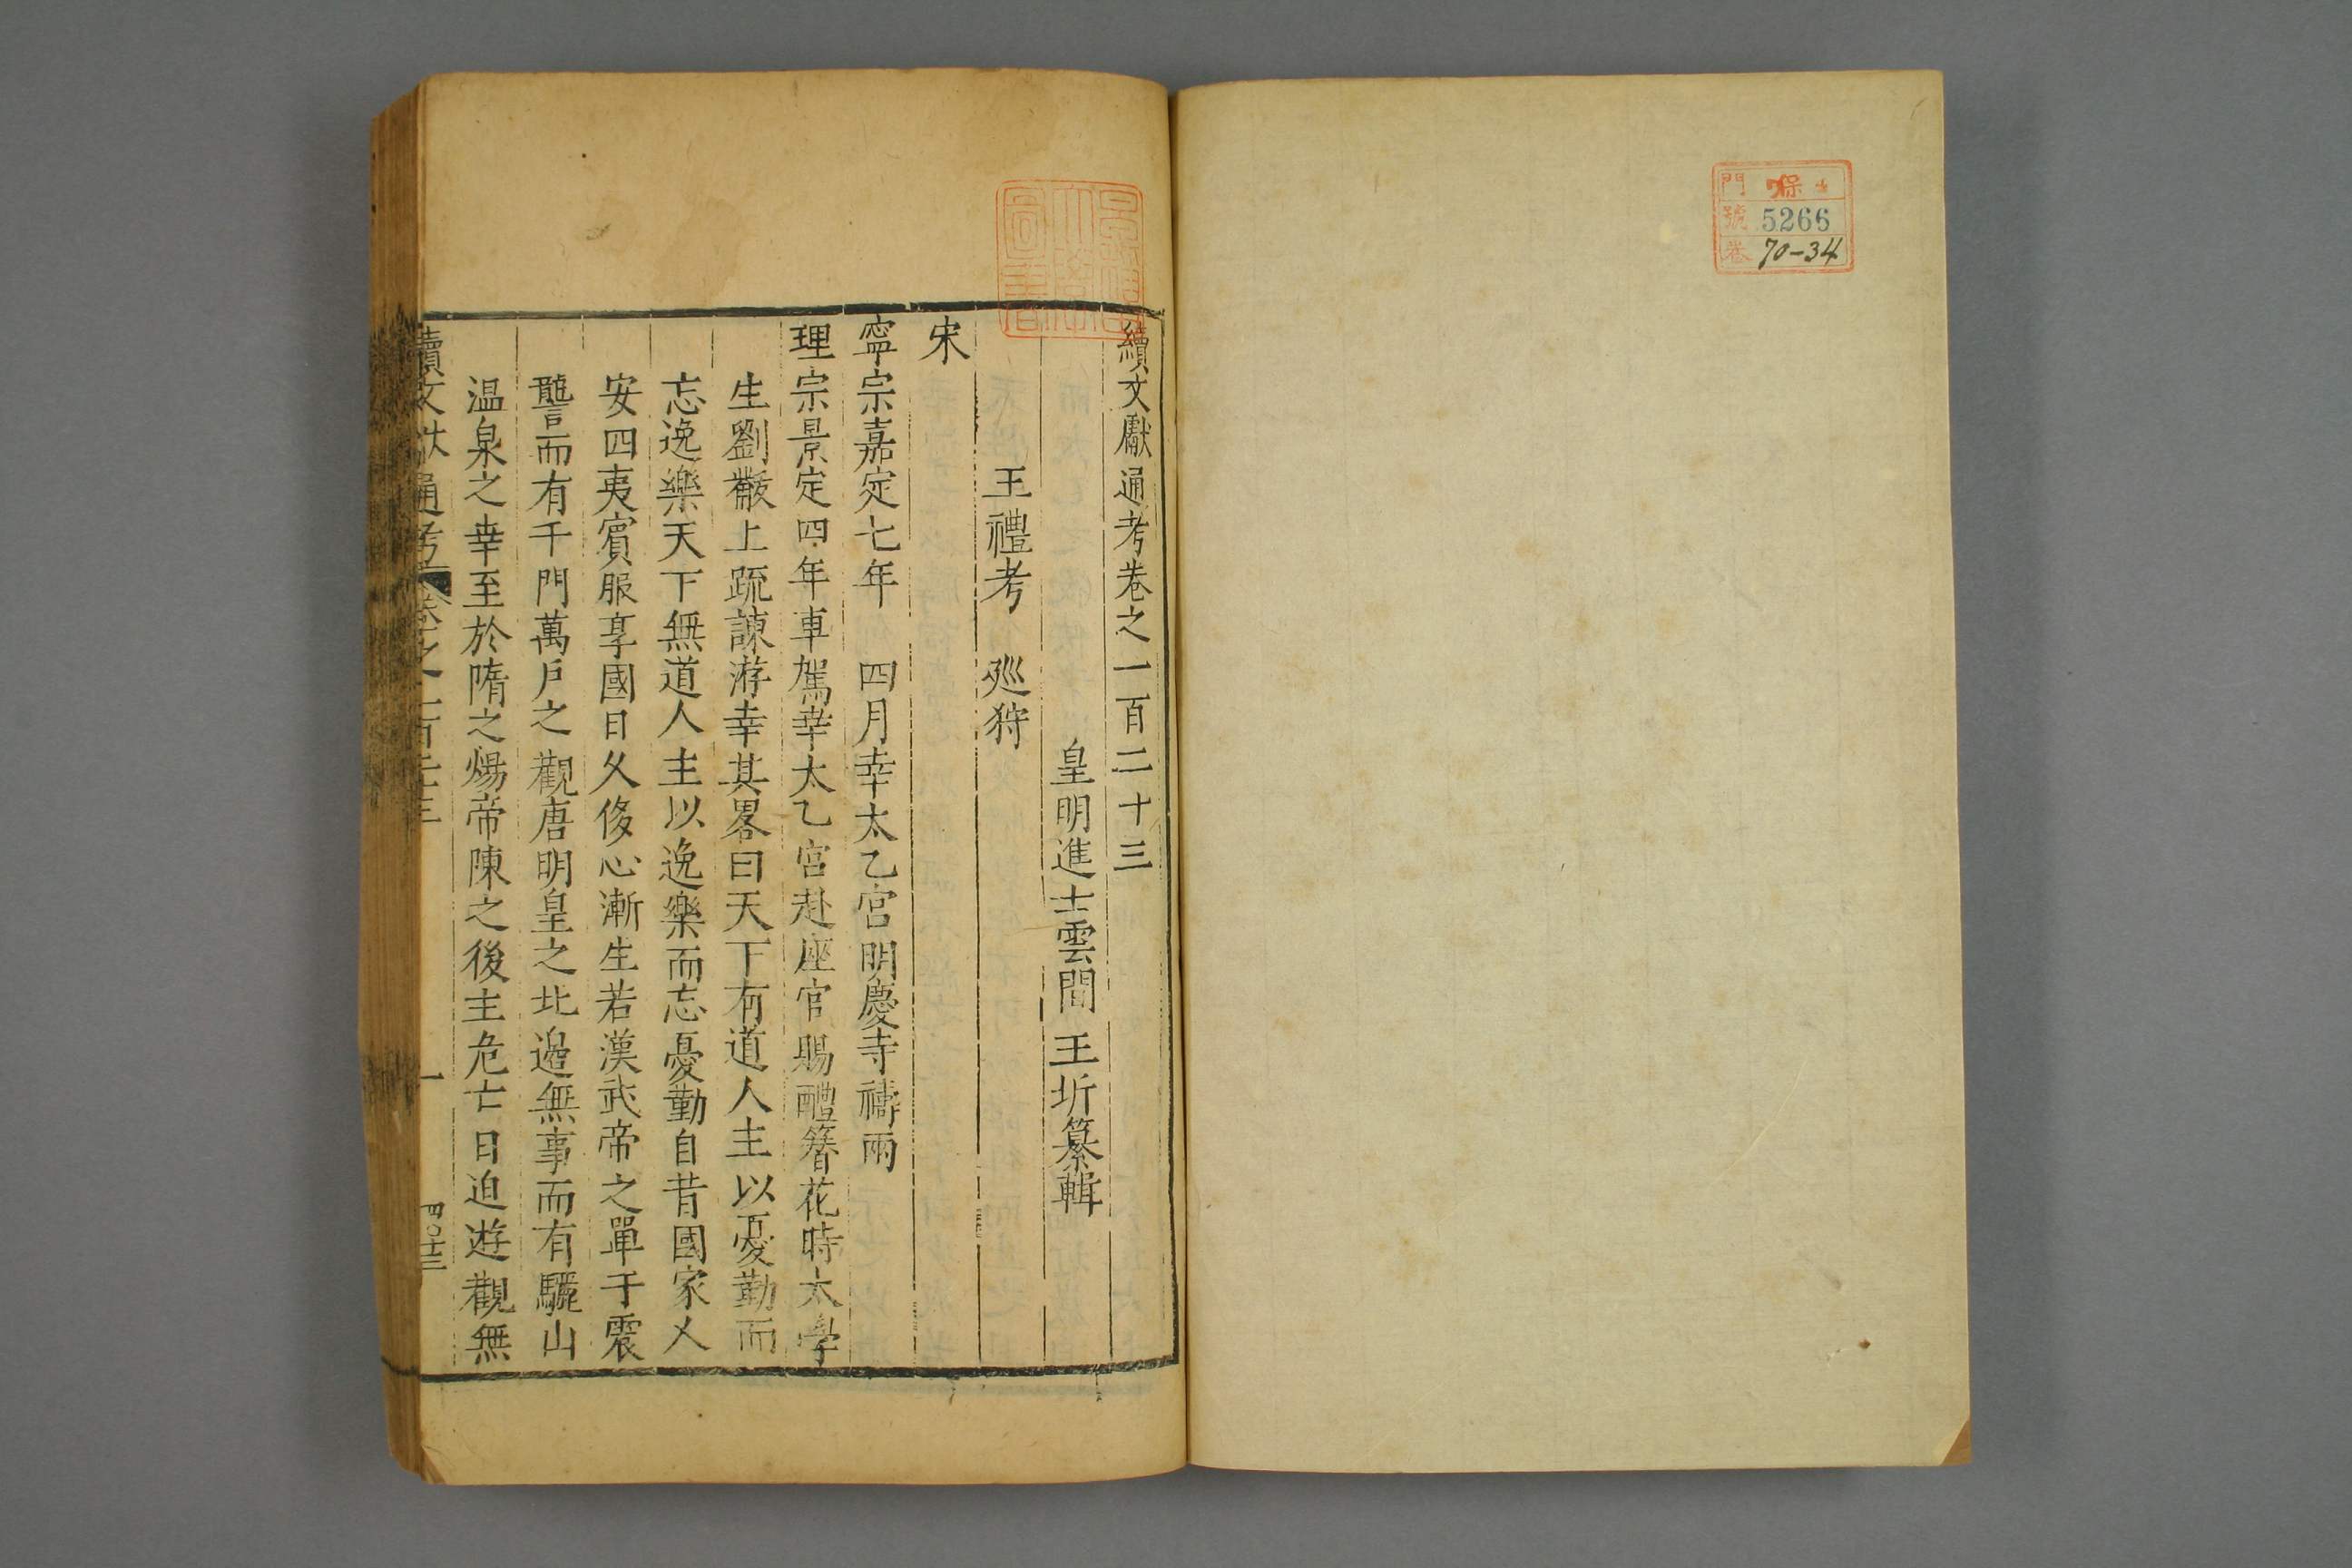 門
號 5266
卷 70-34
續文獻通考卷之一百二十三
皇明進士雲間王圻纂輯
王禮考 廵狩
宋
寧宗嘉定七年 四月幸太乙宮明慶寺禱雨
理宗景定四年車駕幸太乙宮赴座官賜醴簪花時太學
生劉黻上疏諫游幸其畧曰天下有道人主以憂勤而
忘逸樂天下無道人主以逸樂而忘憂勤自昔國家乂
安四夷賓服享國日久侈心漸生若漢武帝之單于震
讋而有千門萬戶之觀唐明皇之北邉無事而有驪山
温泉之幸至於隋之煬帝陳之後主危亡日迫遊觀無
續文獻通考 卷之一百二十三 一